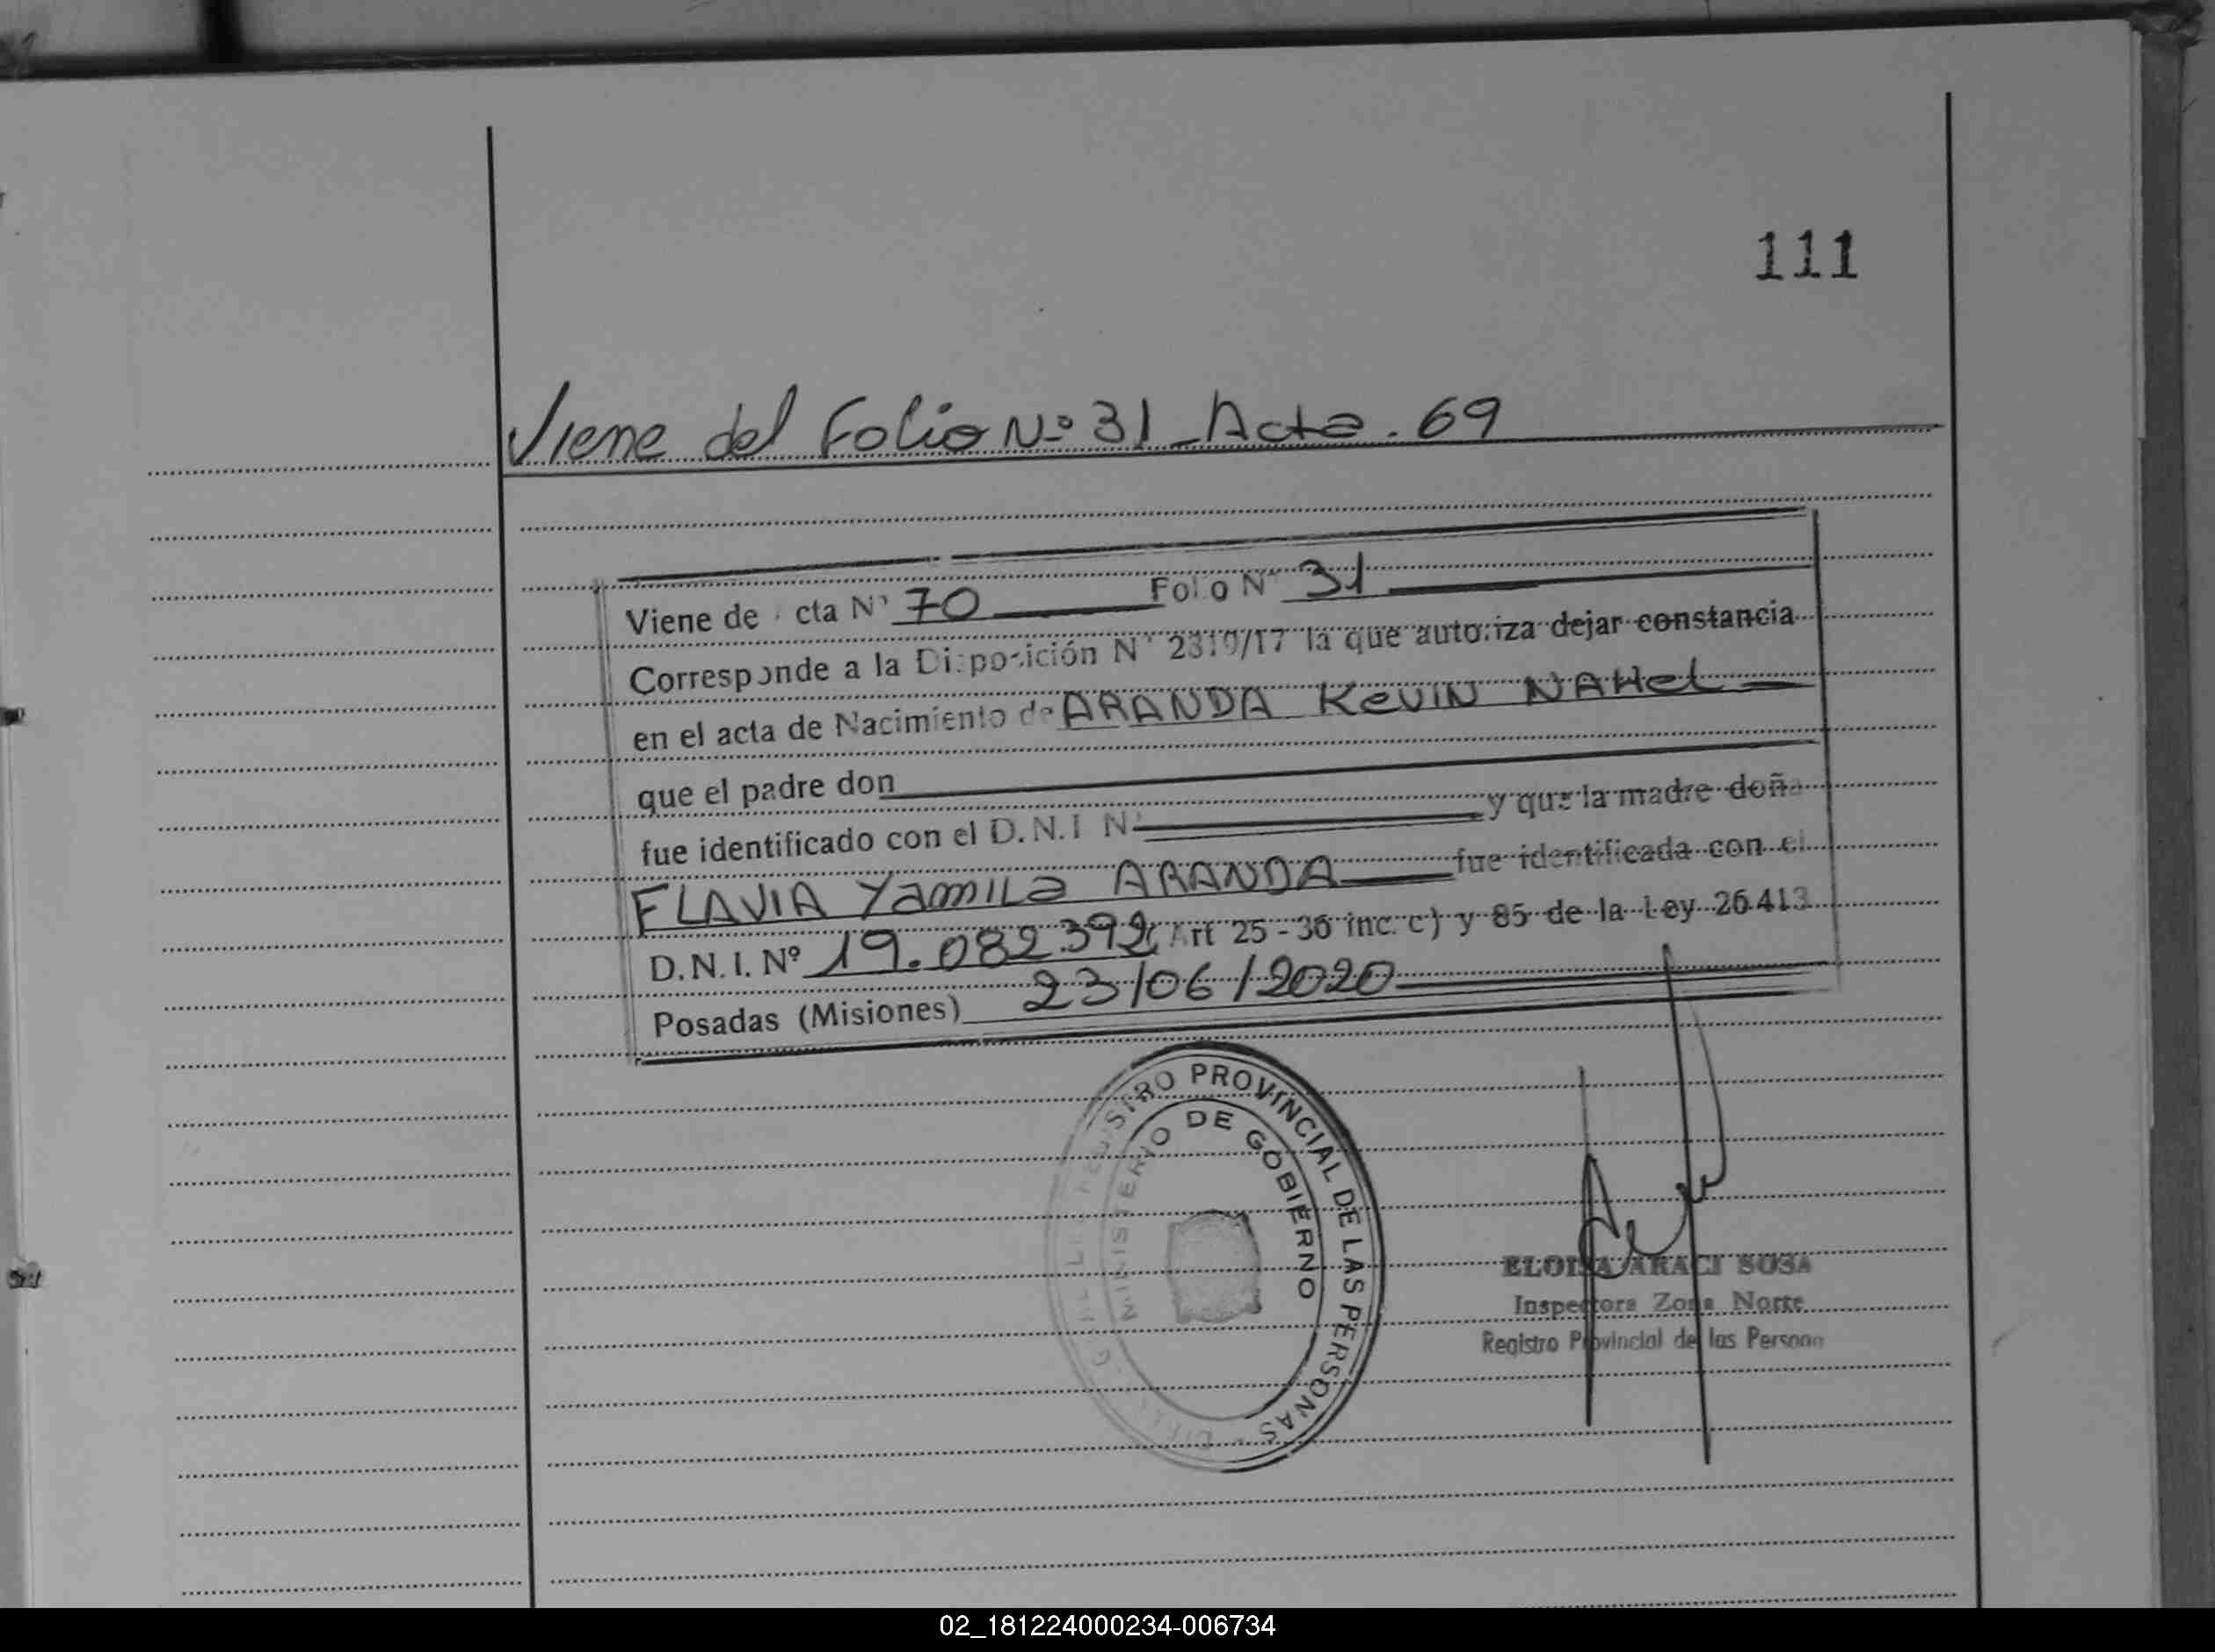 111
Viene del Folio Nº 31 Acta. 69
Viene de cta Nº 70 Folio Nº 31
Corresponde a la Disposición Nº 2310/17 la que autoriza dejar constancia
en el acta de Nacimiento de ARANDA Kevin NAHel
que el padre don
fue identificado con el D.N.I Nº y que la madre doña
FLAVIA YamiLa ARANDA fue identificada con el
D.N.I. Nº 19.082.392 (Art 25 - 36 inc. c) y 85 de la Ley 26.413
Posadas (Misiones) 23/06/2020
REGISTRO PROVINCIAL DE LAS PERSONAS
MINISTERIO DE GOBIERNO
ELOISA ARACI SOSA
Inspectora Zona Norte
Registro Provincial de las Persona
02_181224000234-006734